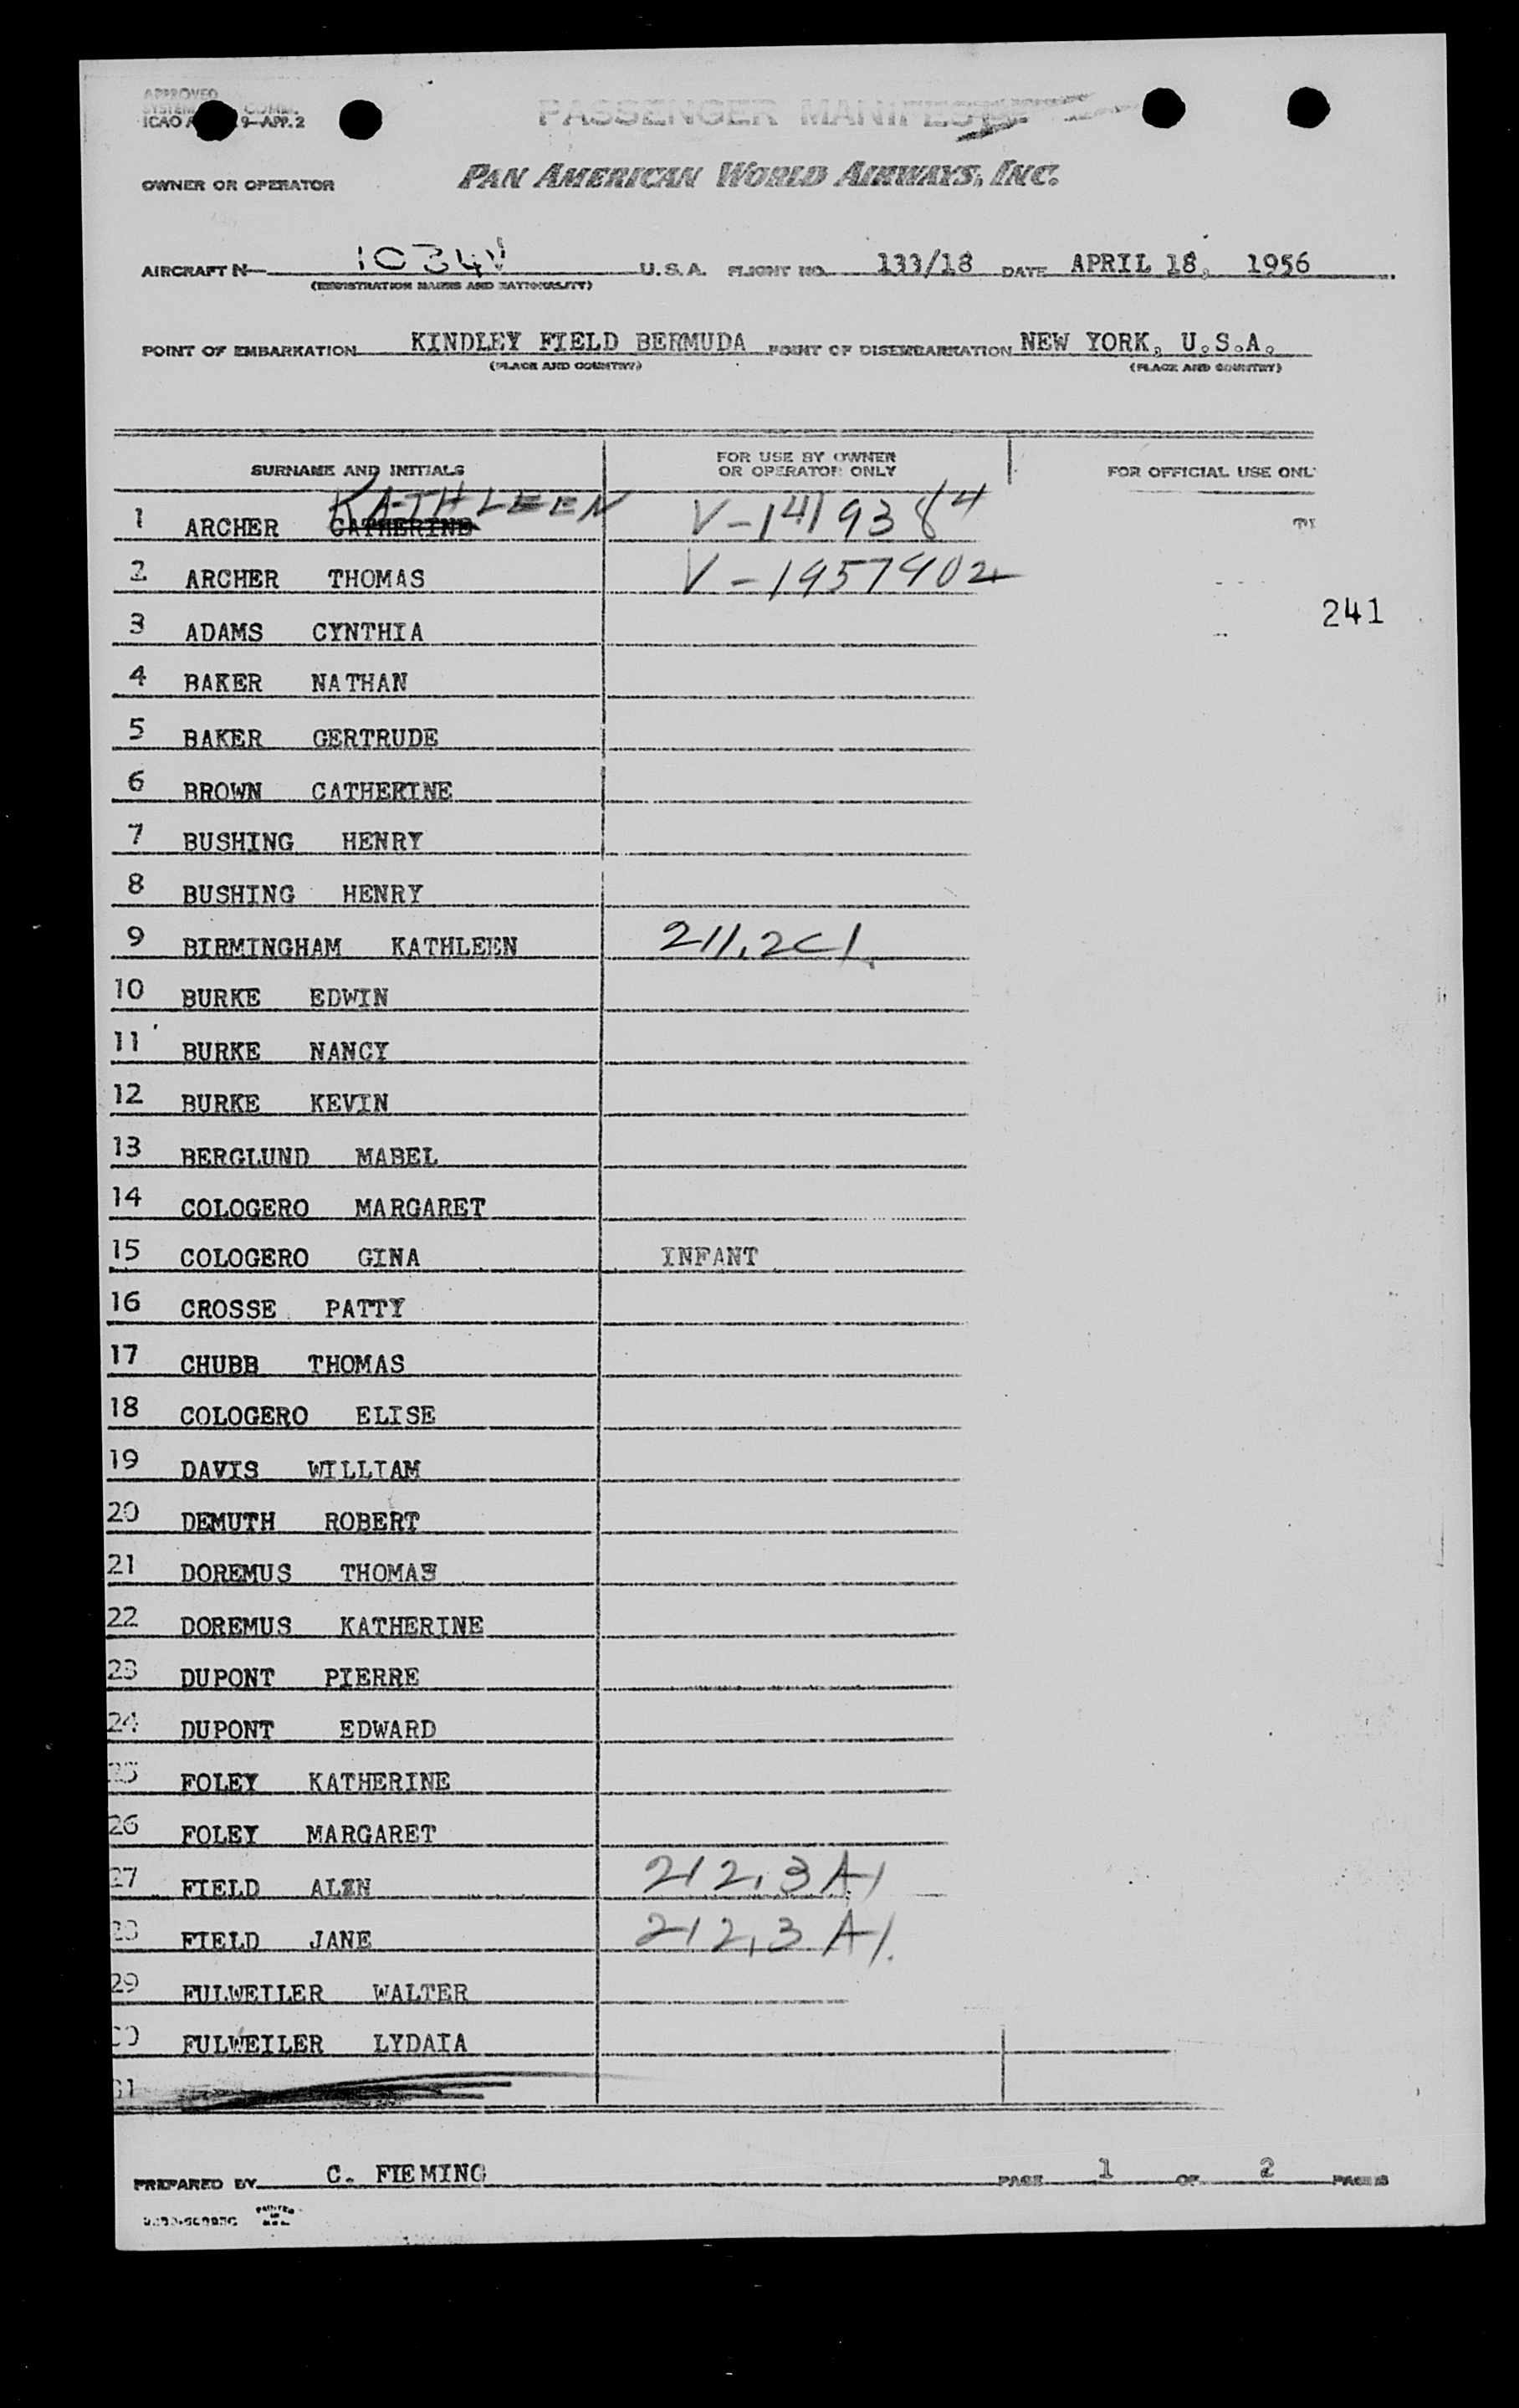 APPROVED
ICAO 9-APP.2
PASSENGER MANIFEST
OWNER OR OPERATOR PAN AMERICAN WORLD AIRWAYS, INC.
AIRCRAFT N 1034V U.S.A. FLIGHT NO. 133/18 DATE APRIL 18, 1956
(REGISTRATION MARKS AND NATIONALITY)
POINT OF EMBARKATION KINDLEY FIELD BERMUDA POINT OF DISEMBARKATION NEW YORK, U.S.A.
(PLACE AND COUNTRY) (PLACE AND COUNTRY)
SURNAME AND INITIALS FOR USE BY OWNER OR OPERATOR ONLY FOR OFFICIAL USE ONL
KATHLEEN
1 ARCHER CATHERINE V-1419384
2 ARCHER THOMAS V-1957902
241
3 ADAMS CYNTHIA
4 BAKER NATHAN
5 BAKER GERTRUDE
6 BROWN CATHERINE
7 BUSHING HENRY
8 BUSHING HENRY
9 BIRMINGHAM KATHLEEN 211.2C1
10 BURKE EDWIN
11 BURKE NANCY
12 BURKE KEVIN
13 BERGLUND MABEL
14 COLOGERO MARGARET
15 COLOGERO GINA INFANT
16 CROSSE PATTY
17 CHUBB THOMAS
18 COLOGERO ELISE
19 DAVIS WILLIAM
20 DEMUTH ROBERT
21 DOREMUS THOMAS
22 DOREMUS KATHERINE
23 DUPONT PIERRE
24 DUPONT EDWARD
25 FOLEY KATHERINE
26 FOLEY MARGARET
27 FIELD ALEN 212.3A1
28 FIELD JANE 212.3A1
29 FULWEILER WALTER
30 FULWEILER LYDAIA
31
PREPARED BY C. FIEMING PAGE 1 OF 2 PAGES
PRINTED IN